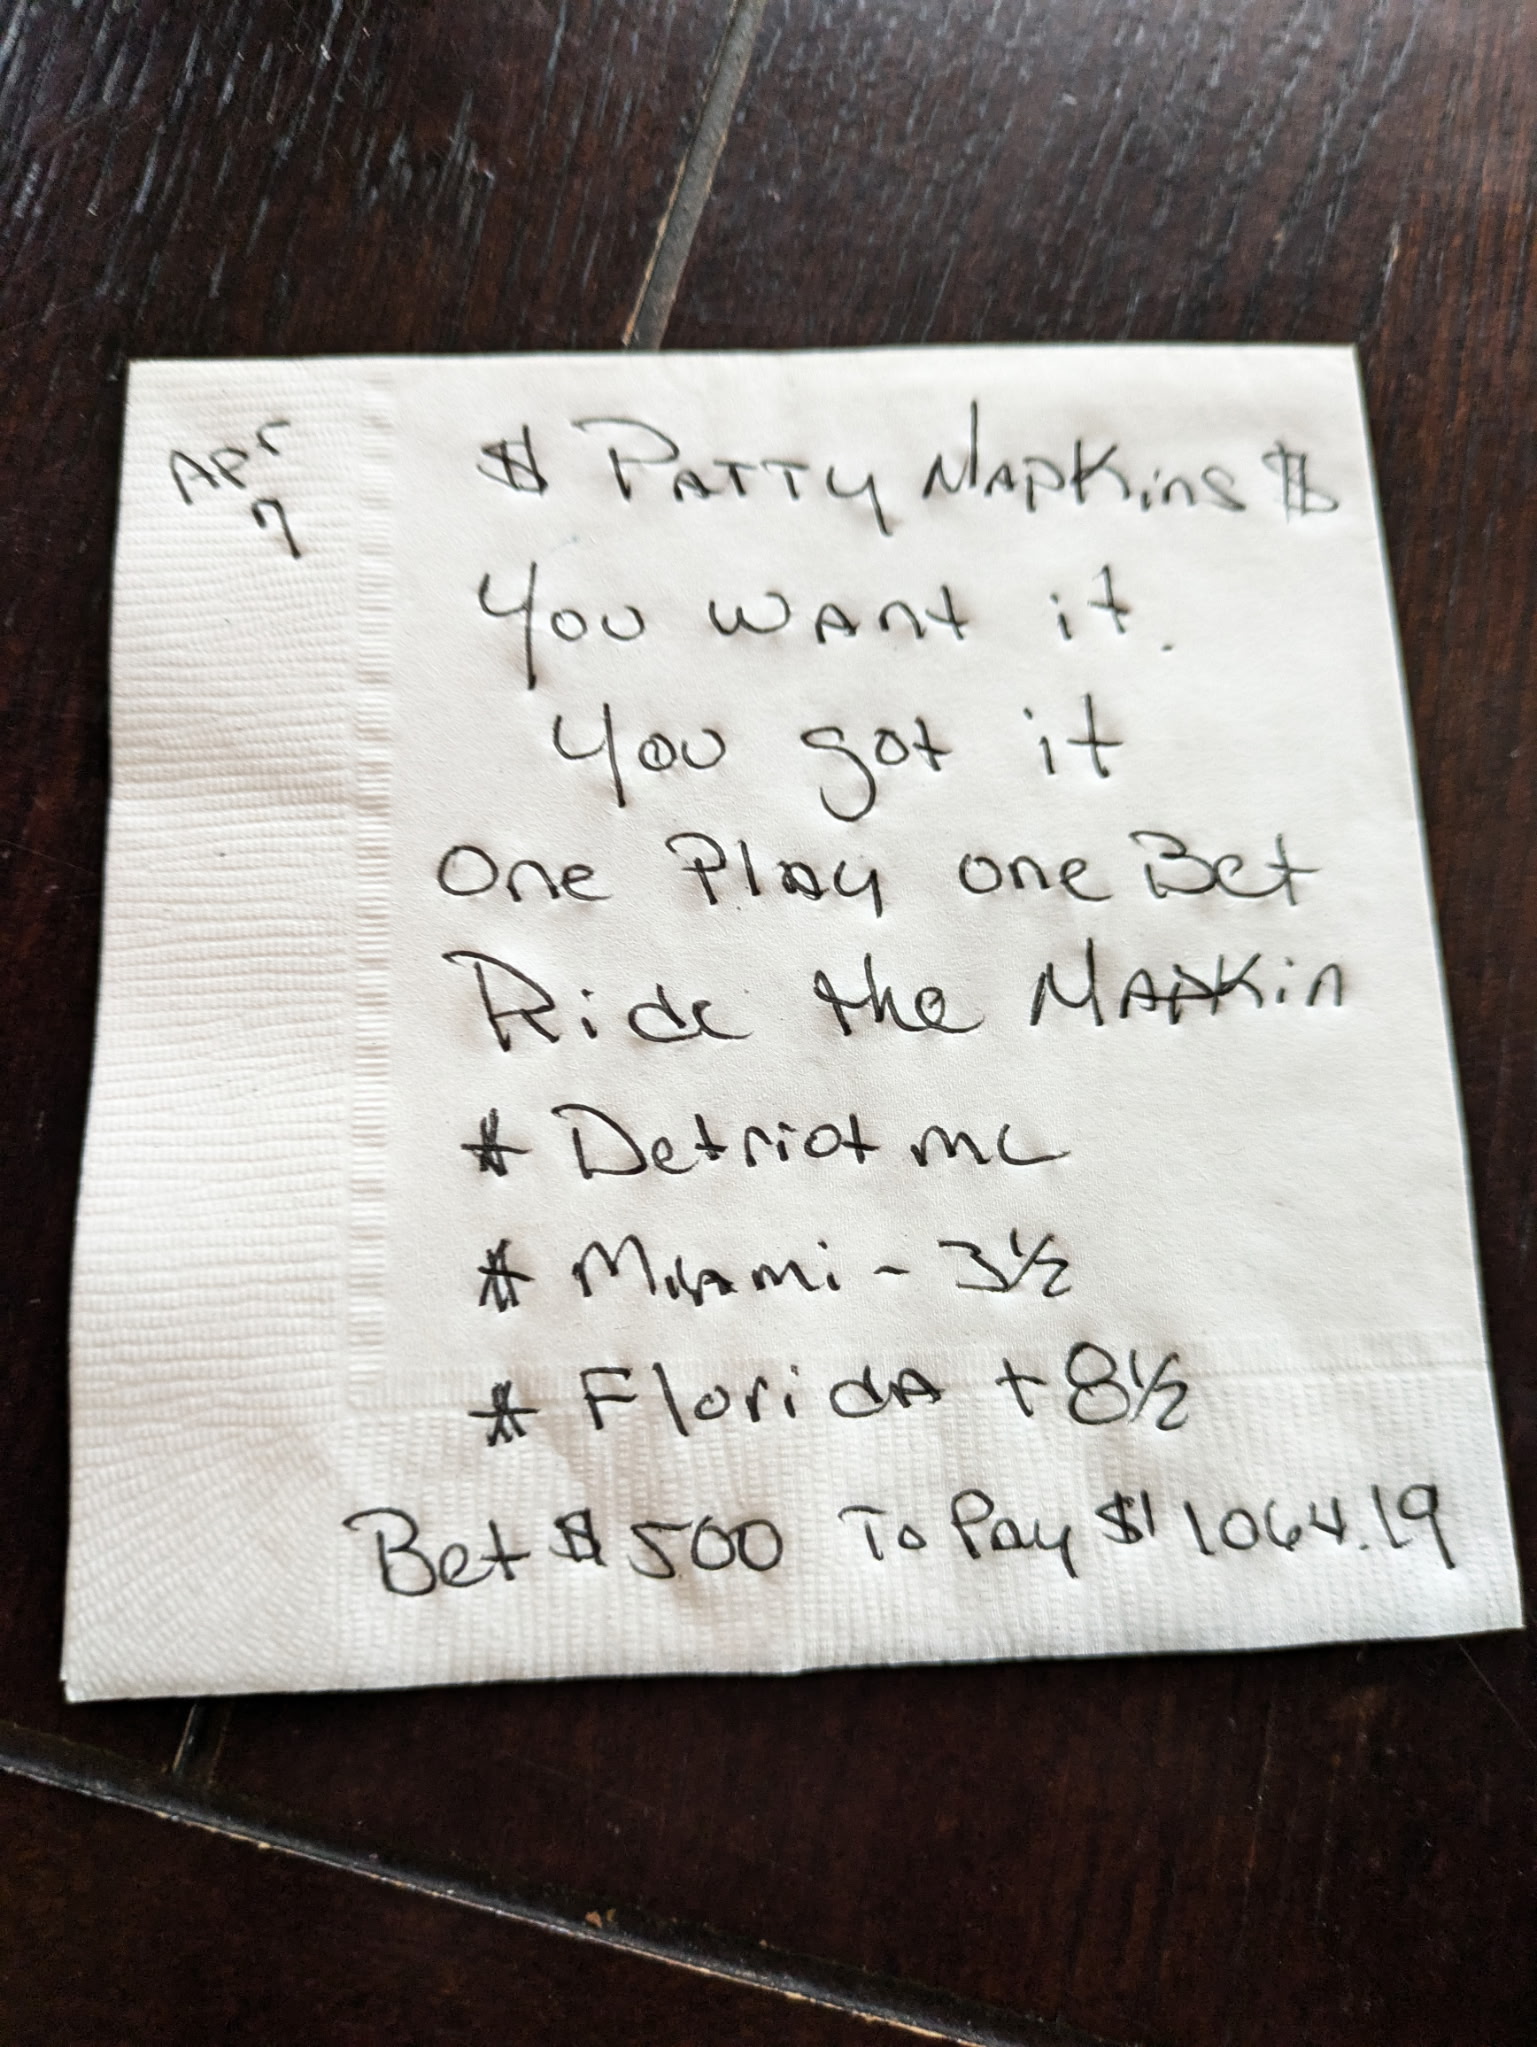 Apr
7
$ Patty Napkins $
You want it.
You got it
One Play one Bet
Ride the Napkin
* Detriot mL
* Miami - 3½
* Florida + 8½
Bet $500 To Pay $1064.19